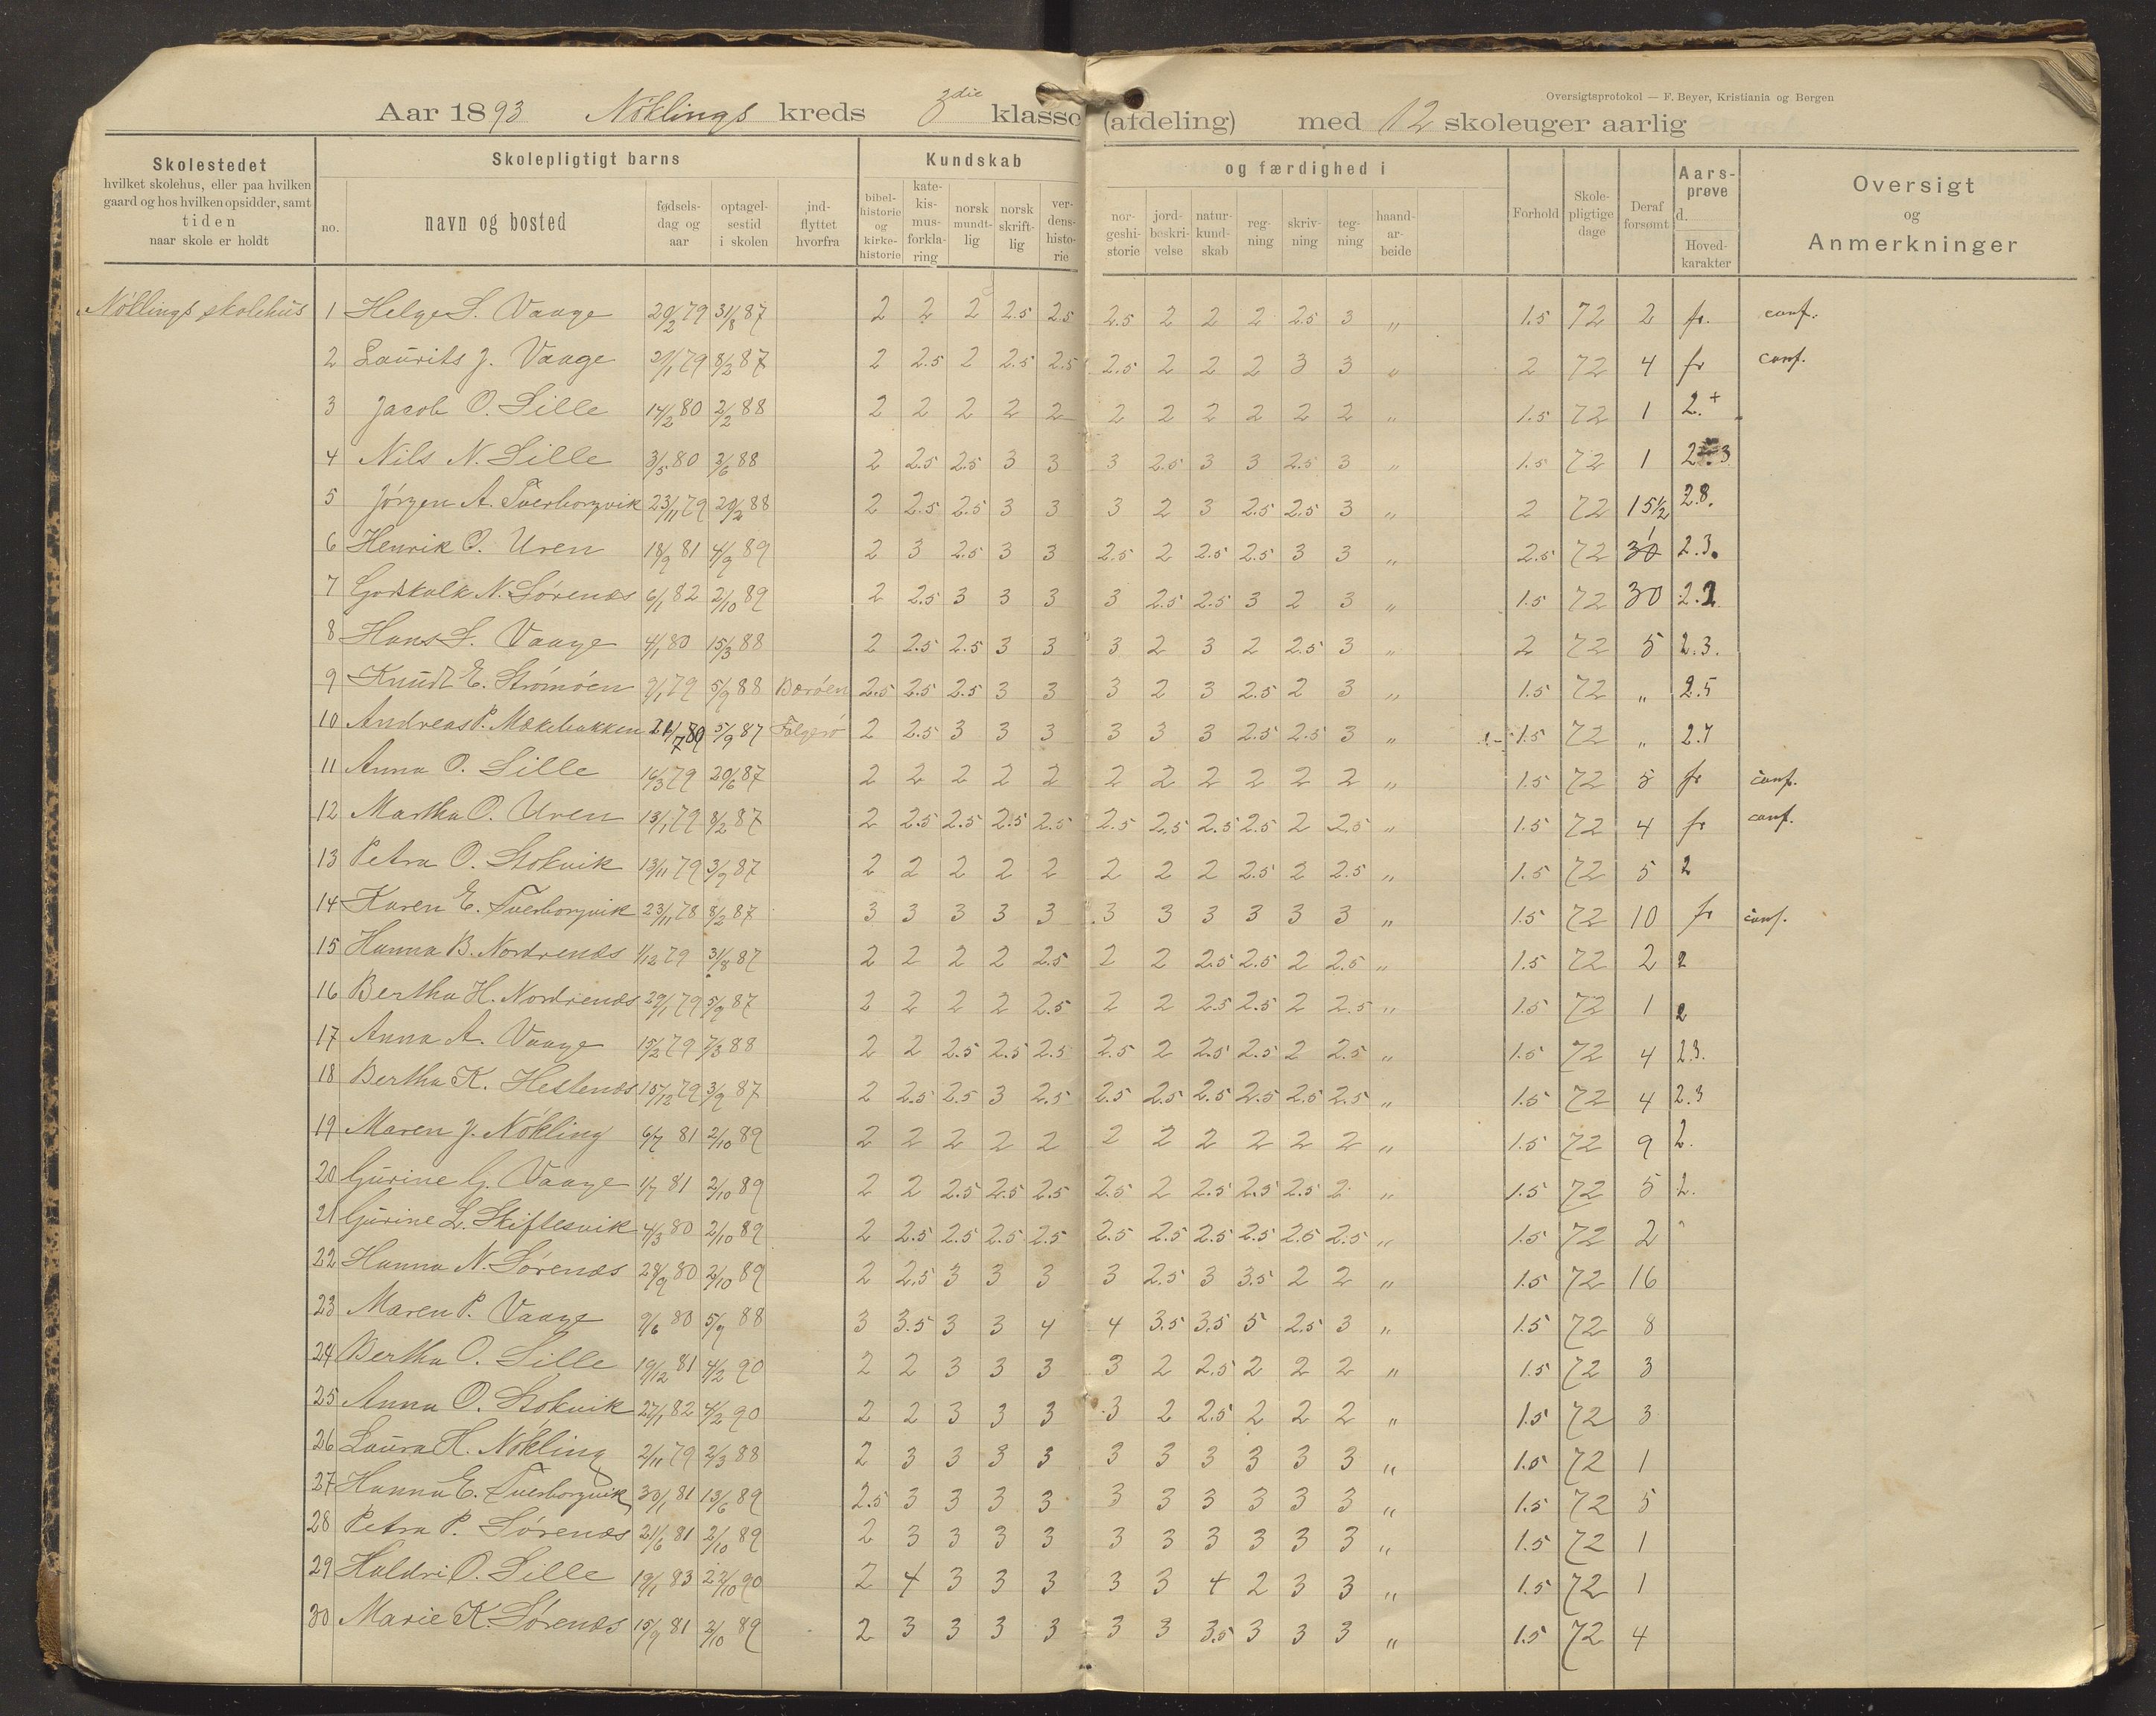 Oversigtsprotokol — F. Beyer, Kristiania og Bergen
Aar 1893 Nöklings kreds 3die klasse (afdeling) med 12 skoleuger aarlig
Skolestedet
hvilket skolehus, eller paa hvilken
gaard og hos hvilken opsidder, samt
tiden
naar skole er holdt
Skolepligtigt barns
no.
navn og bosted
fødsels-
dag og
aar
optagel-
sestid
i skolen
ind-
flyttet
hvorfra
Kundskab
bibel-
historie
og
kirke-
historie
kate-
kis-
mus-
forkla-
ring
norsk
mundt-
lig
norsk
skrift-
lig
ver-
dens-
histo-
rie
og færdighed i
nor-
geshi-
storie
jord-
beskri-
velse
natur-
kund-
skab
reg-
ning
skriv-
ning
teg-
ning
haand-
ar-
beide
Forhold
Skole-
pligtige
dage
Deraf
forsømt
Aars-
prøve
d.
Hoved-
karakter
Oversigt
og
Anmerkninger
Nöklings skolehus 1 Helge S. Vaage 20/2 79 31/8 87 2 2 2 2.5 2.5 2.5 2 2 2 2.5 3 „ 1.5 72 2 fr. conf.
2 Laurits J. Vaage 21/1 79 8/2 87 2 2.5 2 2.5 2.5 2.5 2 2 2 3 3 „ 2 72 4 fr conf.
3 Jacob O. Lille 14/2 80 2/2 88 2 2 2 2 2 2 2 2 2 2 2 „ 1.5 72 1 2.+
4 Nils N. Lille 3/5 80 2/6 88 2 2.5 2.5 3 3 3 2.5 3 3 2.5 3 „ 1.5 72 1 2.3
5 Jörgen A. Tverborgvik 23/11 79 20/2 88 2 2.5 2.5 3 3 3 2 3 2.5 2.5 3 „ 2 72 15½ 2.8.
6 Henrik O. Uren 18/9 81 4/9 89 2 3 2.5 3 3 2.5 2 2.5 2.5 3 3 „ 2.5 72 2.3.
7 Godskalk N. Sörenæs 6/1 82 2/10 89 2 2.5 3 3 3 3 2.5 2.5 3 2 3 „ 1.5 72 30 2.2
8 Hans S. Vaage 4/1 80 15/3 88 2 2.5 2.5 3 3 3 2 3 2 2.5 3 „ 2 72 5 2.3.
9 Knudt E. Strömöen 9/1 79 5/9 88 Boröen 2.5 2.5 2.5 3 3 3 2 3 2.5 2 3 „ 1.5 72 „ 2.5
10 Andreas P. Mækebakken 21/7 80 5/9 87 Folgerö 2 2.5 3 3 3 3 3 3 2.5 2.5 3 „ 1.5 72 „ 2.7
11 Anna O. Lille 16/3 79 20/6 87 2 2 2 2 2 2 2 2 2 2 2 „ 1.5 72 5 fr conf.
12 Martha O. Uren 13/1 79 8/2 87 2 2.5 2.5 2.5 2.5 2.5 2.5 2.5 2.5 2 2.5 „ 1.5 72 4 fr conf.
13 Petra O. Stokvik 13/11 79 3/9 87 2 2 2 2 2 2 2 2 2.5 2 2.5 „ 1.5 72 5 2
14 Karen E. Tverborgvik 23/11 78 8/2 87 3 3 3 3 3 3 3 3 3 3 3 „ 1.5 72 10 fr conf.
15 Hanna B. Nordrenæs 1/12 79 31/8 87 2 2 2 2 2.5 2 2 2.5 2.5 2 2.5 „ 1.5 72 2 2
16 Bertha H. Nordrenæs 29/1 79 5/9 87 2 2 2 2 2.5 2 2 2.5 2.5 2 2.5 „ 1.5 72 1 2
17 Anna A. Vaage 15/2 79 7/3 88 2 2 2.5 2.5 2.5 2.5 2 2.5 2.5 2 2.5 „ 1.5 72 4 2.3.
18 Bertha K. Hestenæs 15/12 79 3/9 87 2 2.5 2.5 3 2.5 2.5 2.5 2.5 2.5 2.5 2.5 „ 1.5 72 4 2.3
19 Maren J. Nökling 6/7 81 2/10 89 2 2 2 2 2 2 2 2 2 2 2 „ 1.5 72 9 2.
20 Gurine G. Vaage 1/7 81 2/10 89 2 2 2.5 2.5 2.5 2.5 2 2.5 2.5 2.5 2 „ 1.5 72 5 2.
21 Gurine L. Skiftesvik 4/3 80 2/10 89 2 2.5 2.5 2.5 2.5 2.5 2.5 2.5 2.5 2.5 2.5 „ 1.5 72 2
22 Hanna N. Sörenæs 28/9 80 2/10 89 2 2.5 3 3 3 3 2.5 3 3.5 2 2 „ 1.5 72 16
23 Maren P. Vaage 9/6 80 5/9 88 3 3.5 3 3 4 4 3.5 3.5 5 2.5 3 „ 1.5 72 8
24 Bertha O. Lille 19/12 81 4/2 90 2 2 3 3 3 3 2 2.5 2 2 2 „ 1.5 72 3
25 Anna O. Stokvik 27/1 82 4/2 90 2 2 3 3 3 3 2 2.5 2 2 2 „ 1.5 72 3
26 Laura H. Nökling 2/11 79 2/3 88 2 3 3 3 3 3 3 3 3 3 3 „ 1.5 72 1
27 Hanna E. Tverborgvik 30/1 81 13/6 89 2.5 3 3 3 3 3 3 3 3 3 3 „ 1.5 72 5
28 Petra P. Sörenæs 21/6 81 2/10 89 2 3 3 3 3 3 3 3 3 3 3 „ 1.5 72 1
29 Haldri O. Lille 19/1 83 22/10 90 2 4 3 3 3 3 3 4 2 3 3 „ 1.5 72 1
30 Marie K. Sörenæs 15/9 81 2/10 89 2 3 3 3 3 3 3 3.5 3 3 3 „ 1.5 72 4